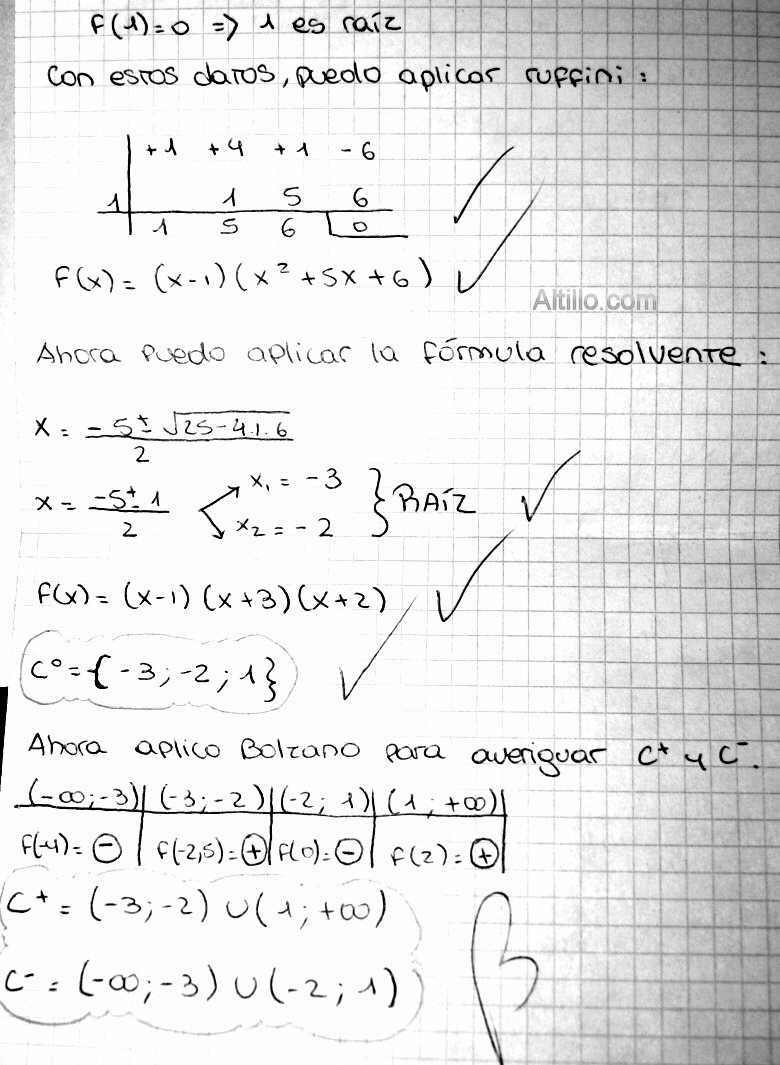 f(1)=0 => 1 es raíz
Con estos datos, puedo aplicar ruffini:
+1 +4 +1 -6
1 1 5 6
1 5 6 0
f(x) = (x-1)(x² + 5x + 6)
Altillo.com
Ahora puedo aplicar la fórmula resolvente:
x = -5 ± √25-4.1.6
2
x = -5 ± 1 x₁ = -3
2 x₂ = -2 } RAÍZ
f(x) = (x-1) (x+3)(x+2)
C° = {-3; -2; 1}
Ahora aplico Bolzano para averiguar C⁺ y C⁻.
(-∞; -3) | (-3; -2) | (-2; 1) | (1; +∞) |
f(-4) = - | f(-2,5) = + | f(0) = - | f(2) = + |
C⁺ = (-3; -2) ∪ (1; +∞)
C⁻ = (-∞; -3) ∪ (-2; 1)